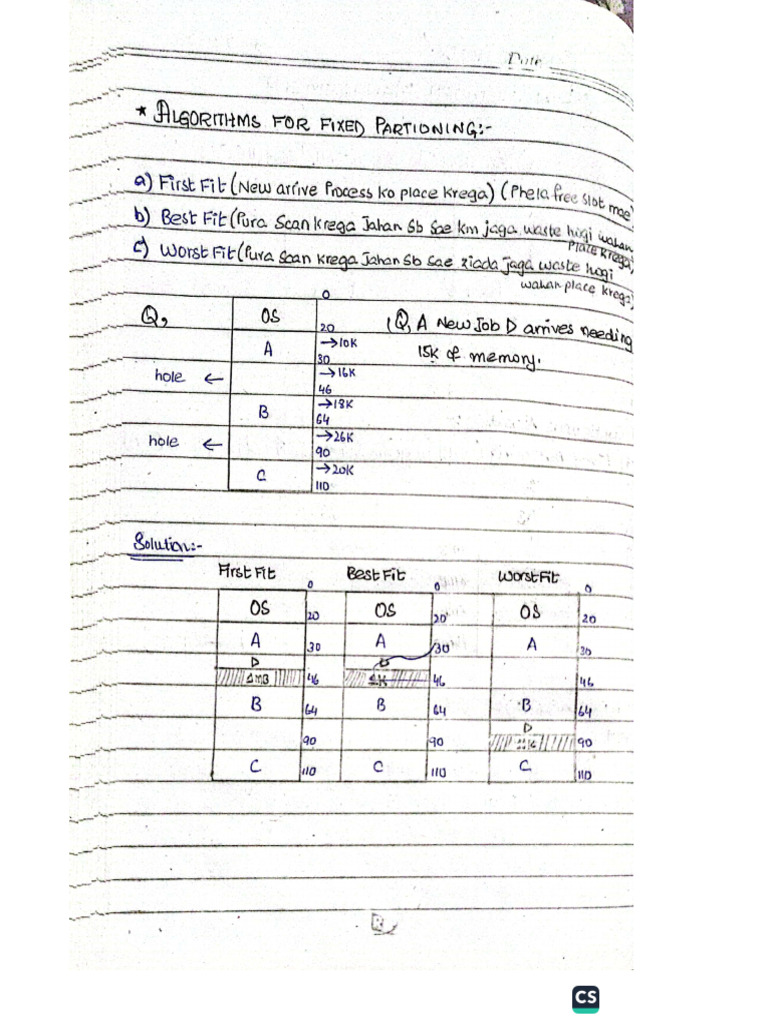 Date
* ALGORITHMS FOR FIXED PARTIONING:-
a) First Fit (New arrive Process ko place krega) (Phela free slot mae
b) Best Fit (Pura Scan krega Jahan Sb Sae km jaga waste hogi wahan
place krega)
c) Worst Fit (Pura Scan krega Jahan Sb Sae ziada jaga waste hogi
wahan place krega)
0
Q, OS (Q, A New Job D arrives needing
20
A →10K 15K of memory.
30
hole ← →16K
46
B →18K
64
hole ← →26K
90
C →20K
110
Solution:-
First Fit Best Fit Worst Fit
0 0 0
OS 20 OS 20 OS 20
A 30 A 30 A 30
D D
1MB 46 1K 46 46
B 64 B 64 B 64
D
90 90 11K 90
C 110 C 110 C 110
CS